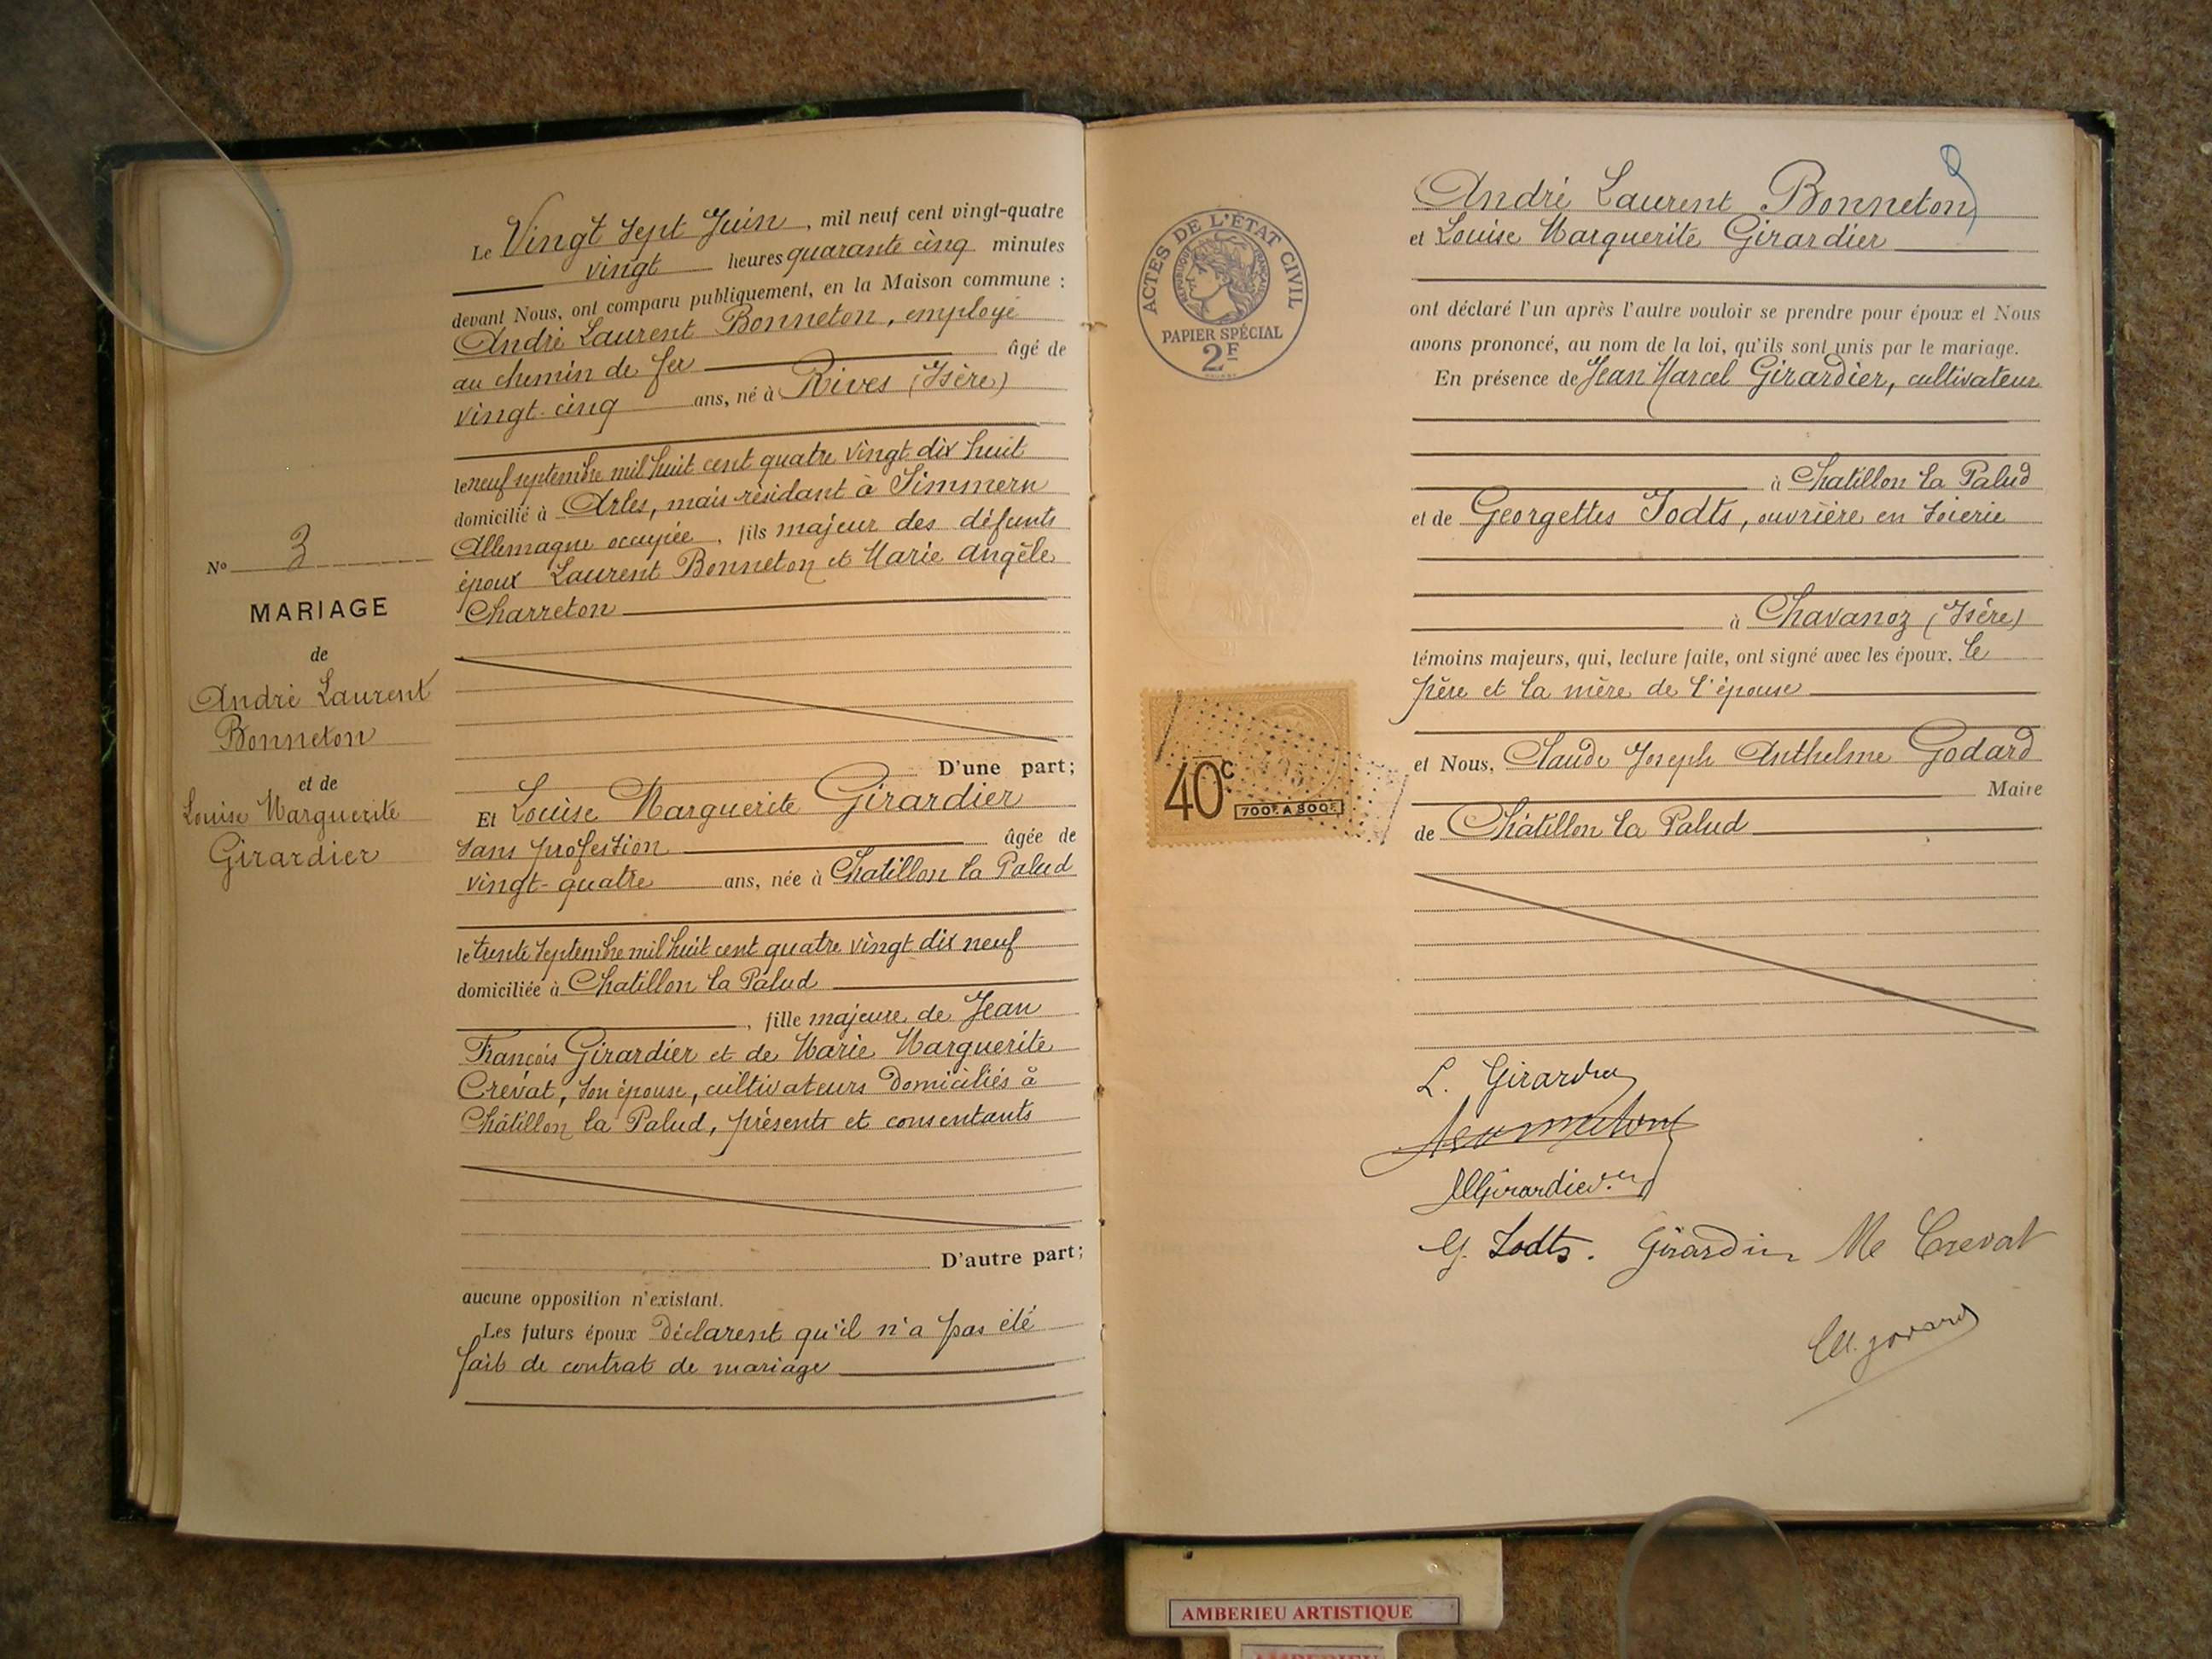 N° 3
MARIAGE
de
André Laurent
Bonneton
et de
Louise Marguerite
Girardier
Le Vingt sept Juin, mil neuf cent vingt-quatre
vingt heures quarante cinq minutes
devant Nous, ont comparu publiquement, en la Maison commune :
André Laurent Bonneton, employé
au chemin de fer âgé de
vingt-cinq ans, né à Rives (Isère)
le neuf septembre mil huit cent quatre vingt dix huit
domicilié à Arles, mais résidant à Simmern
Allemagne occupée, fils majeur des défunts
époux Laurent Bonneton et Marie Angèle
Charreton
D'une part;
Et Louise Marguerite Girardier
sans profession âgée de
vingt-quatre ans, née à Chatillon la Palud
le trente septembre mil huit cent quatre vingt dix neuf
domiciliée à Chatillon la Palud
, fille majeure de Jean
François Girardier et de Marie Marguerite
Crévat, son épouse, cultivateurs domiciliés à
Châtillon la Palud, présents et consentants
D'autre part;
aucune opposition n'existant.
Les futurs époux déclarent qu'il n'a pas été
fait de contrat de mariage
ACTES DE L'ÉTAT CIVIL
RÉPUBLIQUE FRANÇAISE
PAPIER SPÉCIAL
2F
40c
700F. A 800F.
André Laurent Bonneton
et Louise Marguerite Girardier
ont déclaré l'un après l'autre vouloir se prendre pour époux et Nous
avons prononcé, au nom de la loi, qu'ils sont unis par le mariage.
En présence de Jean Marcel Girardier, cultivateur
à Chatillon la Palud
et de Georgettes Jodts, ouvrière en soierie
à Chavanoz (Isère)
témoins majeurs, qui, lecture faite, ont signé avec les époux, le
père et la mère de l'épouse
et Nous, Claude Joseph Anthelme Godard
Maire
de Châtillon la Palud
L. Girardier
Bonneton
Girardier
G. Jodts. Girardier Me Crevat
Godard
AMBERIEU ARTISTIQUE
AMBERIEU